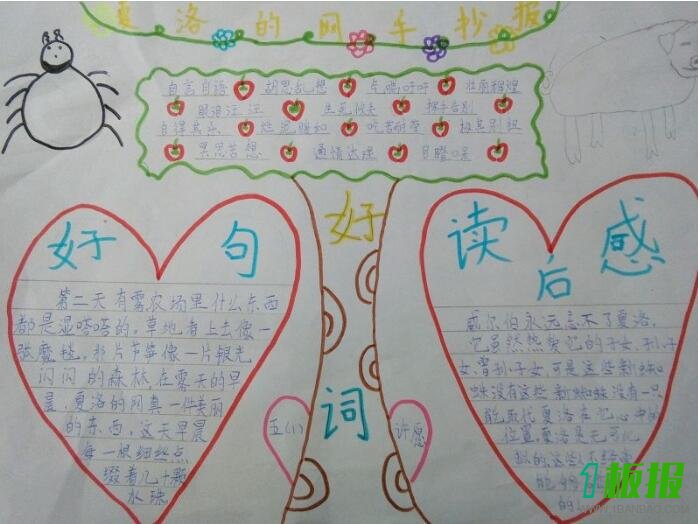 夏洛的网手抄报
自言自语 胡思乱想 气喘吁吁 壮丽辉煌
眼泪汪汪 生死攸关 挥手告别
自得其乐 烂泥 吃苦耐劳 极其别扭
冥思苦想 通情达理 目瞪口呆
好词
好句
第二天有雾农场里什么东西
都是湿嗒嗒的,草地看上去像一
张魔毯,那片节笋像一片银光
闪闪的森林,在雾天的早
晨,夏洛的网真一件美丽
的东西,这天早晨
每一根细丝点
缀着几十颗
水珠
读后感
威尔伯永远忘不了夏洛,
它虽然热爱它的子女、孙子
女、曾孙子女,可是这些新蜘
蛛没有这些新蜘蛛没有一只
能取代夏洛在它心中的
位置夏洛是无可比
拟的,这些
五(1)
许愿
1板报
WWW.1BANBAO.COM